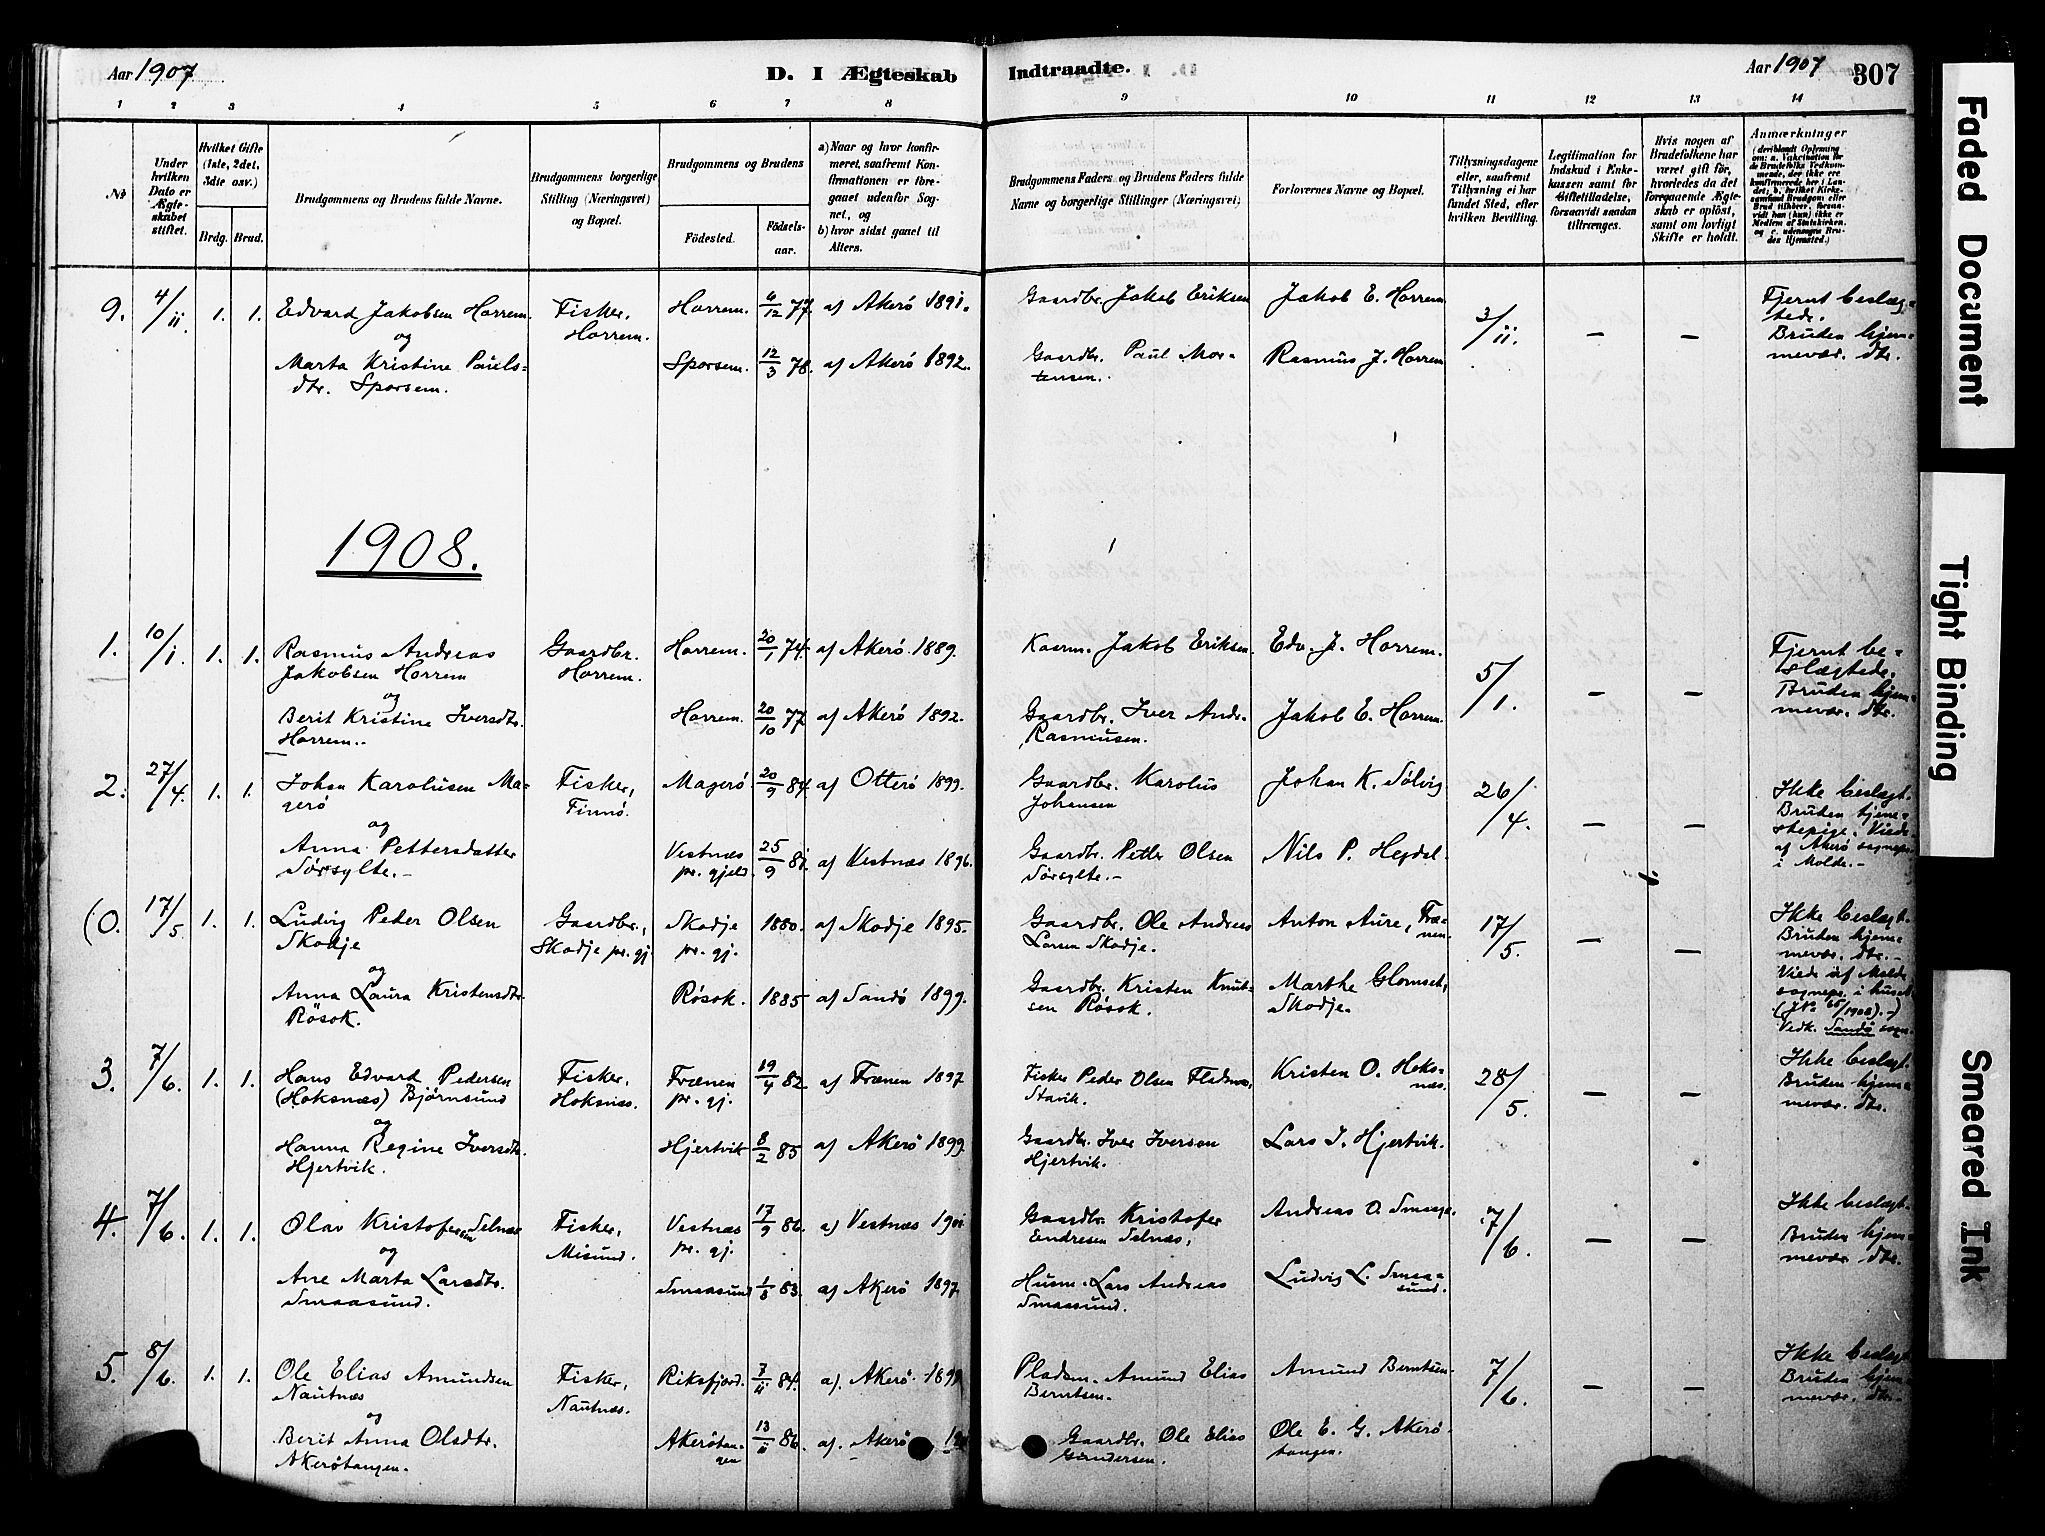 Aar 1907
D. I Ægteskab
Indtraadte.
Aar 1907
307
1 2 3 4 5 6 7 8 9 10 11 12 13 14
No
Under hvilken Dato er Ægteskabet stiftet.
Hvilket Gifte (1ste, 2det, 3die osv.)
Brdg. Brud.
Brudgommens og Brudens fulde Navne.
Brudgommens borgerlige Stilling (Næringsvei) og Bopæl.
Brudgommens og Brudens
Födested.
Födselsaar.
a) Naar og hvor konfirmeret, saafremt Konfirmationen er foregaaet udenfor Sognet, og
b) hvor sidst gaaet til Alters.
Brudgommens Faders og Brudens Faders fulde Navne og borgerlige Stillinger (Næringsvei)
Forlovernes Navne og Bopæl.
Tillysningsdagene eller, saafremt Tillysning ei har fundet Sted, efter hvilken Bevilling.
Legitimation for Indskud i Enkekassen samt for Giftetilladelse, forsaavidt saadan tiltrænges.
Hvis nogen af Brudefolkene har været gift för, hvorledes da det foregaaende Ægteskab er oplöst, samt om lovligt Skifte er holdt.
Anmærkninger
9. 4/11. 1. 1. Edvard Jakobsen Horrem. Fisker, Horrem. 6/12 77. af Akerö 1891. Gaardbr. Jakob Eriksen Jakob E. Horrem 3/11. — — Fjernt beslæg-
og Horrem. tede.
Marta Kristine Pauls- Sporsem. 12/3 78. af Akerö 1892. Gaardbr. Paul Mor- Rasmus J. Horrem Bruden hjem-
dtr. Sporsem. tensen. mevær. dtr.
1908.
1. 10/1. 1. 1. Rasmus Andreas Gaardbr. Horrem. 20/1 74. af Akerö 1889. Jakob Eriksen. Edv. J. Horrem. 5/1. — — Fjernt be-
Jakobsen Horrem Horrem. slægtede.
og Bruden hjem-
Berit Kristine Iversdtr. Horrem. 20/10 77 af Akerö 1892. Gaardbr. Iver Andr. Jakob E. Horrem. mevær. dtr.
Horrem. Rasmusen.
2. 27/4. 1. 1. Johan Karolusen Ma- Fisker, Magerö 20/9 84. af Otterö 1899. Gaardbr. Karolus Johan K. Sölvig 26/4. — — Ikke beslægt.
gerö Finnö. Johansen Bruden tjene-
og stepige. Viede
Anna Pettersdatter Vestnæs 25/9 81. af Vestnæs 1896. Gaardbr. Petter Olsen Nils P. Hegdal. af Akerö sognepr.
Sörsylte.- pr. gjeld Sörsylte.- i Molde.-
(0. 17/5 1. 1. Ludvig Peder Olsen Gaardbr., Skodje 1880. af Skodje 1895. Gaardbr. Ole Andreas Anton Aure, Fræ- 17/5. — — Ikke beslægt.
Skodje Skodje pr. gj. pr. gj. Larsen Skodje. nen. Bruden hjem-
og mevær. dtr.-
Anna Laura Kristensdtr. Rösok. 1885 af Sandö 1899. Gaardbr. Kristen Knut- Marthe Glomset, Viede af Molde
Rösok. sen Rösok. Skodje. sognepr. i huset
Vedk. Sandö sogn.
3. 7/6. 1. 1. Hans Edvard Pedersen Fisker, Frænen 82 af Frænen 1897 Fisker Peder Olsen Kristen O. Hoks- 28/5. — — Ikke beslægt.
(Hoksnæs) Björnsund Hoksnæs. pr. gj. Stavik. næs. Bruden hjem-
og mevær. dtr.
Hanna Regine Iversdtr. Hjertvik 8/2 85 af Akerö 1899. Gaardbr. Iver Iversen Lars I. Hjertvik.
Hjertvik. Hjertvik.
4. 7/6. 1. 1. Olav Kristofersen Selnæs Fisker, Vestnæs 17/9 86. af Vestnæs 1901 Gaardbr. Kristofer Andreas O. 7/6. — — Ikke beslægt.
og Misund. pr. gj. Endresen Selnæs, Bruden hjem-
Ane Marta Larsdtr. Smaasund 1/8 83. af Akerö 1897. Husm. Lars Andreas Ludvig L. Smaa- mevær. dtr.
Smaasund. Smaasund. sund.
5. 8/6. 1. 1. Ole Elias Amundsen Fisker, Riksfjord. 7/11 84. af. Akerö 1899 Pladsm. Amund Elias Amund Berntsen. 7/6. — — Ikke beslægt.
Nautnæs Nautnæs. Berntsen. Bruden hjem-
og mevær. dtr.
Berit Anna Olsdtr. Akerötan- 13/11 86. af. Akerö Gaardbr. Ole Elias Ole E. G. Akerö-
Akerötangen. gen Gundersen. tangen.
Faded Document
Tight Binding
Smeared Ink